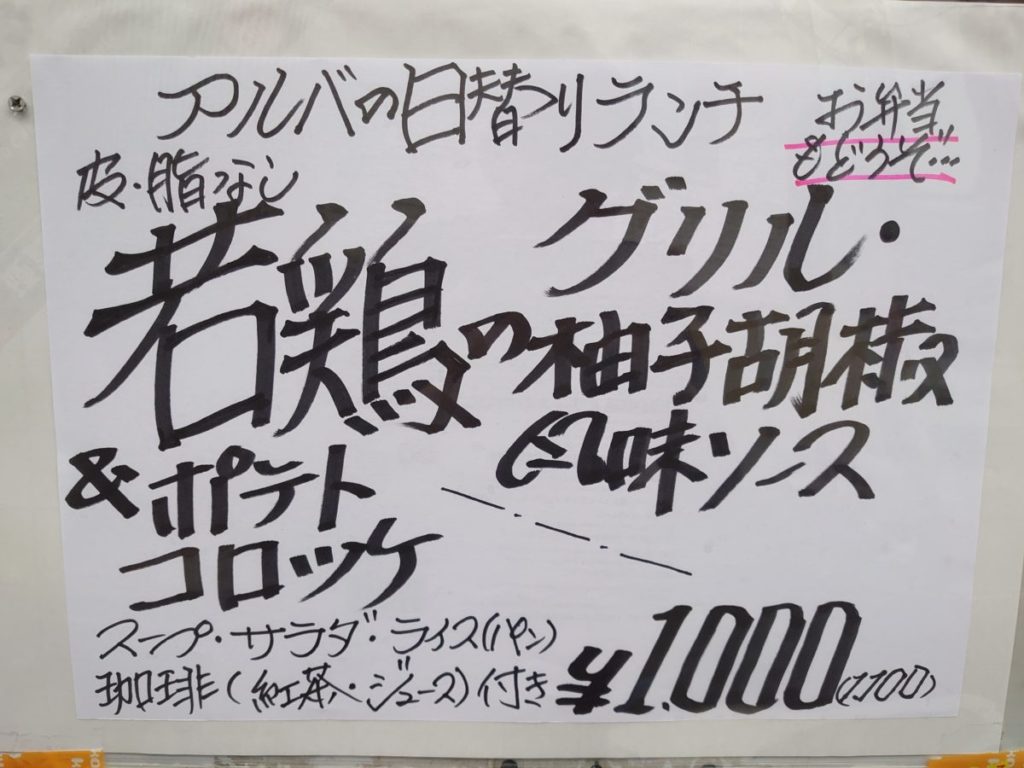 アルバの日替りランチ
お弁当
もどうぞ…
皮・脂なし
若鶏の
グリル・
柚子胡椒
風味ソース
&ポテト
コロッケ
スープ・サラダ・ライス(パン)
珈琲(紅茶・ジュース)付き
¥1.000(1100)